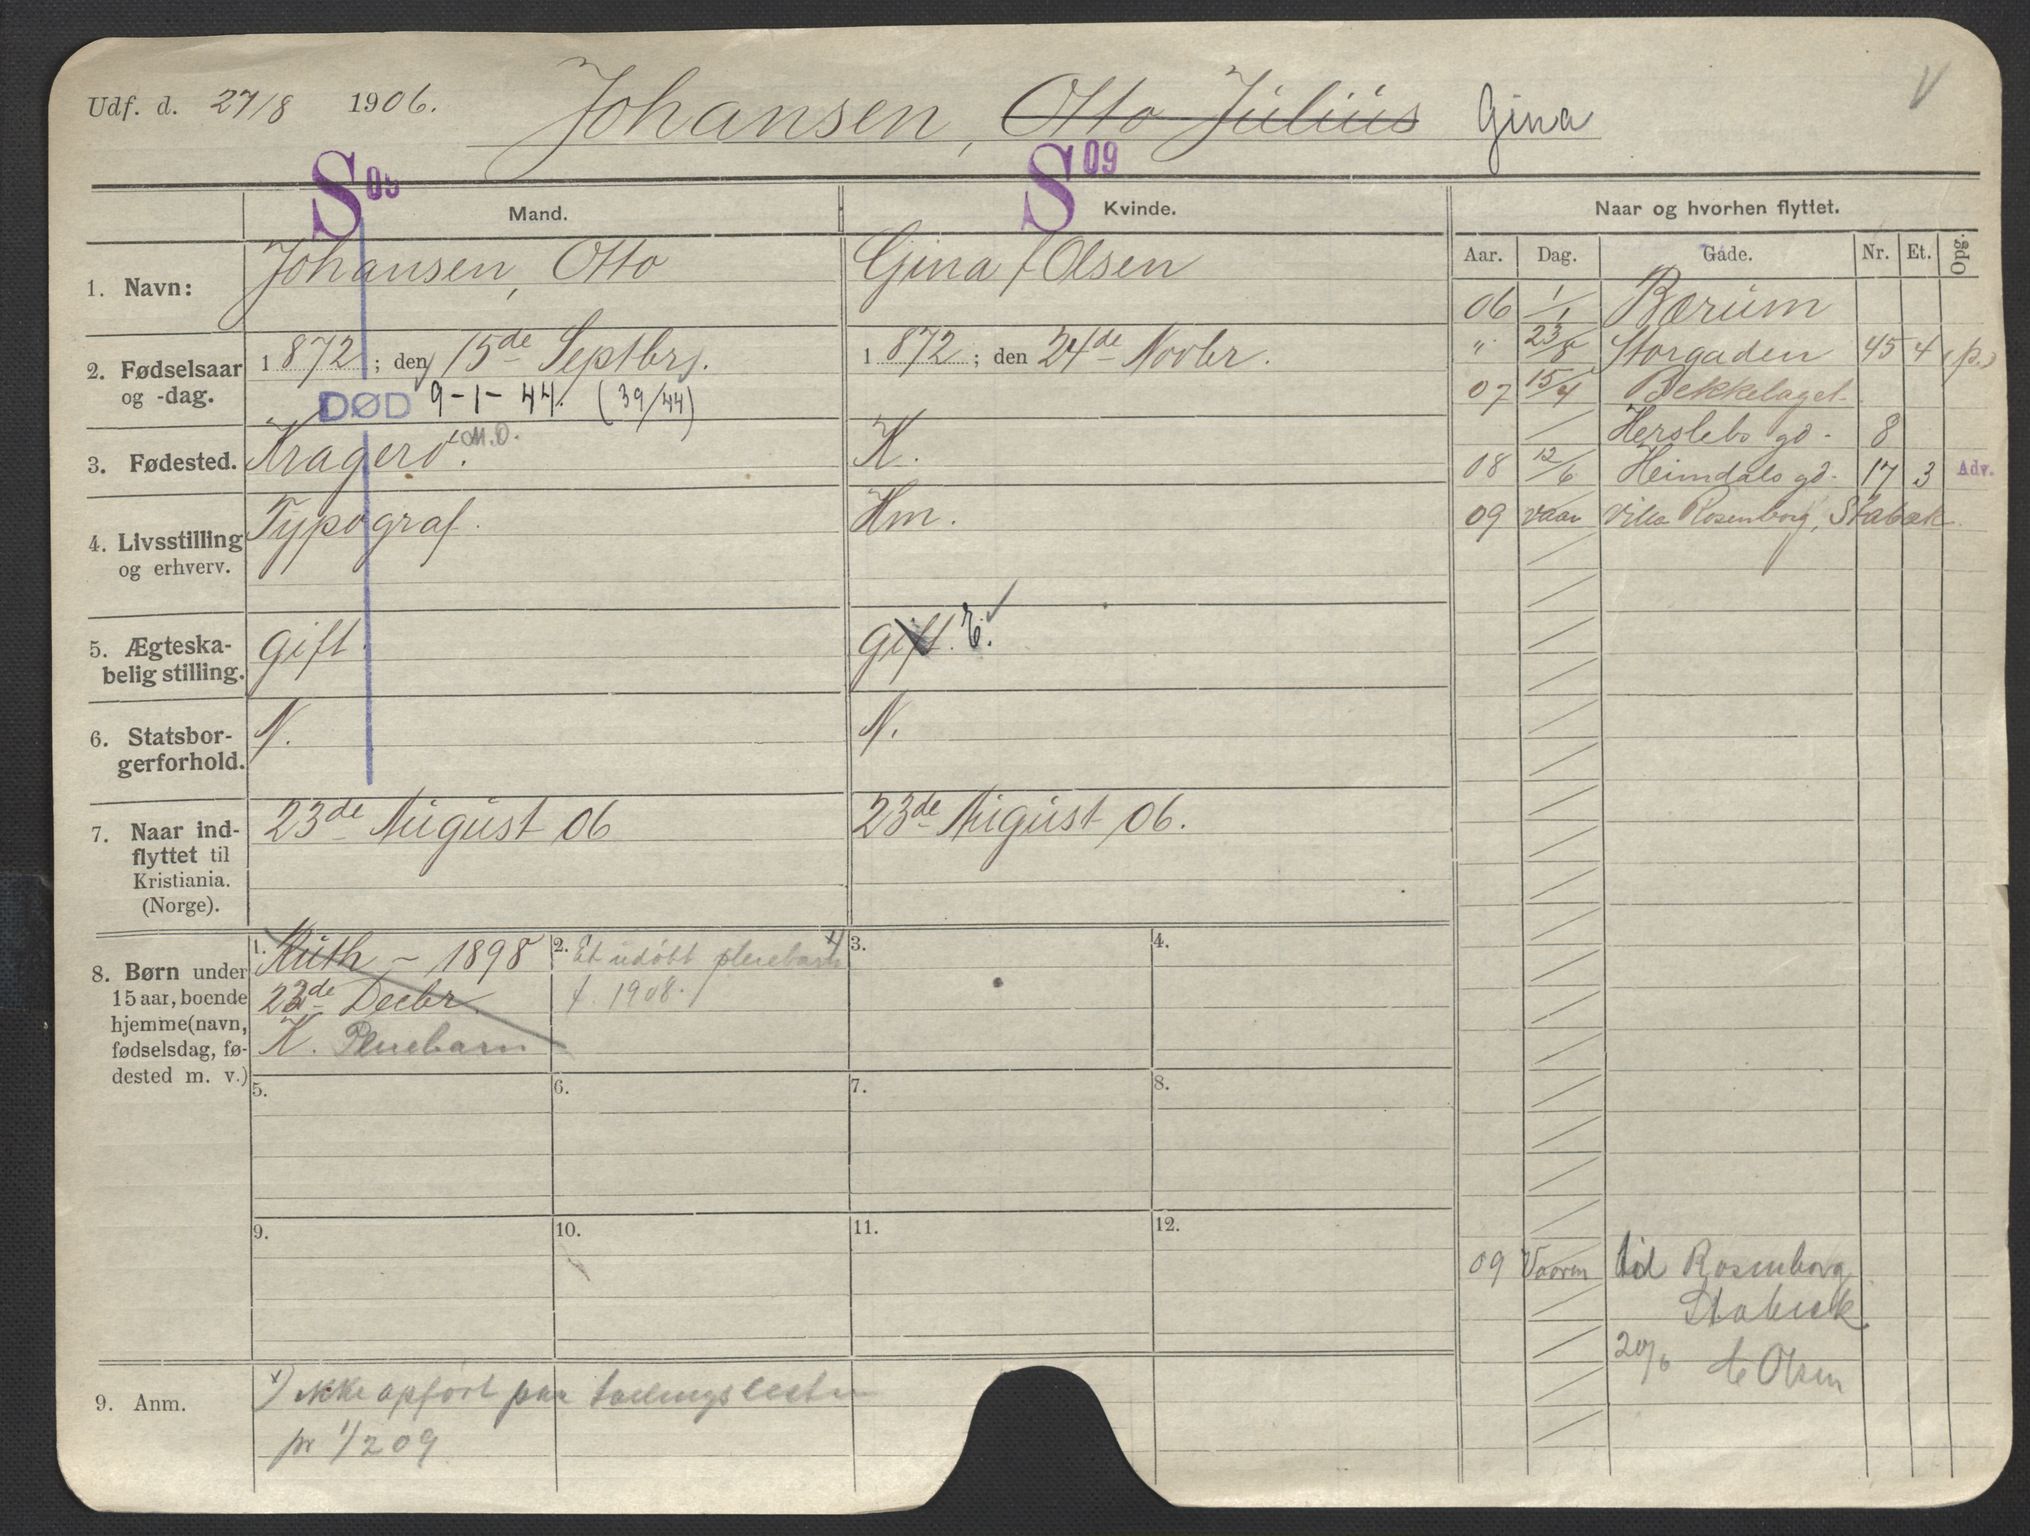 Udf. d. 27/8 1906. Johansen, Otto Julius Gina
V
S 09
Mand. Kvinde. Naar og hvorhen flyttet.
Aar. Dag. Gade. Nr. Et. Opg.
1. Navn: Johansen, Otto Gina f Olsen
2. Fødselsaar og -dag. 1872; den 15de Septbr. 1872; den 24de Novbr.
DØD 9-1-44. (39/44)
3. Fødested. Kragerø. M.D. K.
4. Livsstilling og erhverv. Typograf. Hm.
5. Ægteska-
belig stilling. gift. gift. E.
6. Statsbor-
gerforhold. N. N.
7. Naar ind-
flyttet til
Kristiania.
(Norge). 23de August 06 23de August 06.
06 1/1 Bærum
" 23/8 Storgaden 45 4 (p.)
07 15/4 Bekkelaget.
Herslebs gd. 8
08 12/6 Heimdals gd. 17 3 Adv.
09 vaar Villa Rosenborg, Stabæk.
8. Børn under
15 aar, boende
hjemme (navn,
fødselsdag, fø-
dested m. v.)
1. Ruth - 1898
23de Decbr.
K. Pleiebarn
2. Et udøbt pleiebarn x)
f. 1908.
3. 4.
5. 6. 7. 8.
9. 10. 11. 12.
09 Vaaren til Rosenborg
Stabæk
20/6 Olsen
9. Anm. x) ikke opført paa tællingslisten
pr 1/2 09